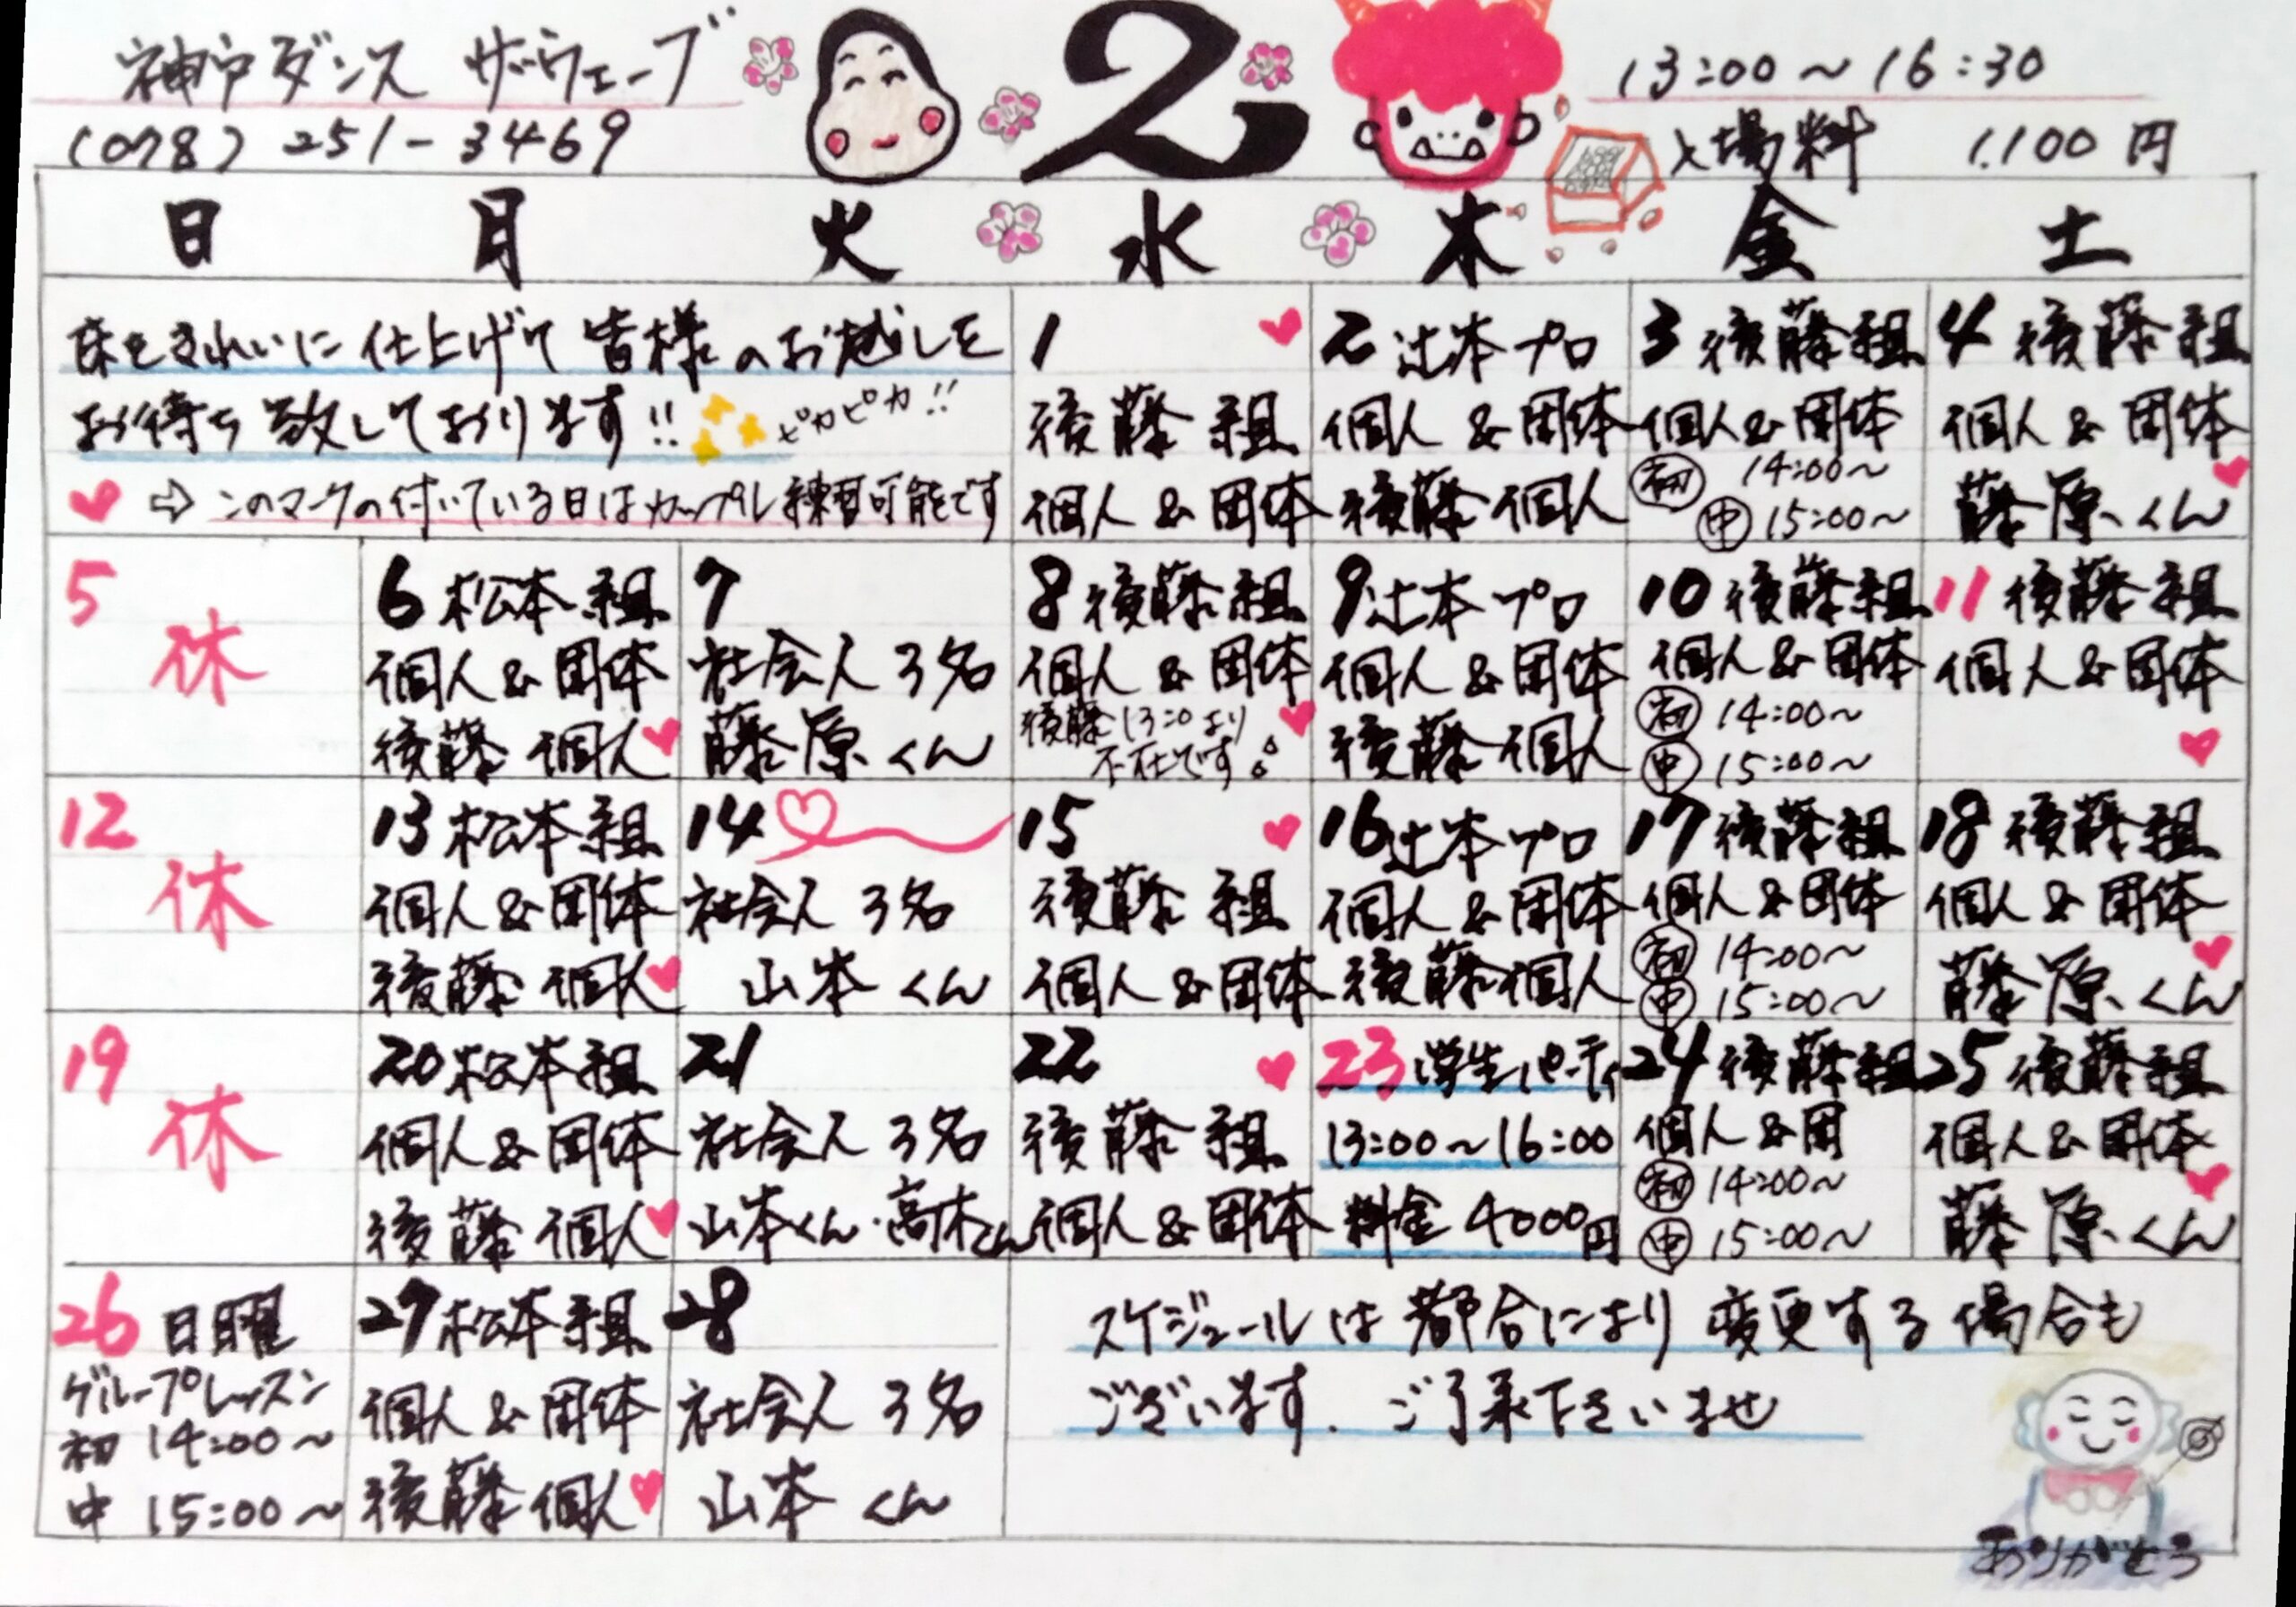 神戸ダンス ザ・ウェーブ
(078) 251-3469
2
13:00～16:30
入場料 1,100円
日 月 火 水 木 金 土
床をきれいに仕上げて皆様のお越しを
お待ち致しております!! ピカピカ!!
⇨ このマークの付いている日はカップル練習可能です
1
後藤組
個人&団体
2 辻本プロ
個人&団体
後藤個人
3 後藤組
個人&団体
初 14:00～
中 15:00～
4 後藤組
個人&団体
藤原くん
5
休
6 松本組
個人&団体
後藤個人
7
社会人3名
藤原くん
8 後藤組
個人&団体
後藤13:00より
不在です。
9 辻本プロ
個人&団体
後藤個人
10 後藤組
個人&団体
初 14:00～
中 15:00～
11 後藤組
個人&団体
12
休
13 松本組
個人&団体
後藤個人
14
社会人3名
山本くん
15
後藤組
個人&団体
16 辻本プロ
個人&団体
後藤個人
17 後藤組
個人&団体
初 14:00～
中 15:00～
18 後藤組
個人&団体
藤原くん
19
休
20 松本組
個人&団体
後藤個人
21
社会人3名
山本くん・高木くん
22
後藤組
個人&団体
23 学生パーティ
13:00～16:00
料金 4000円
24 後藤組
個人&団
初 14:00～
中 15:00～
25 後藤組
個人&団体
藤原くん
26 日曜
グループレッスン
初 14:00～
中 15:00～
27 松本組
個人&団体
後藤個人
28
社会人3名
山本くん
スケジュールは都合により変更する場合も
ございます. ご了承下さいませ
ありがとう